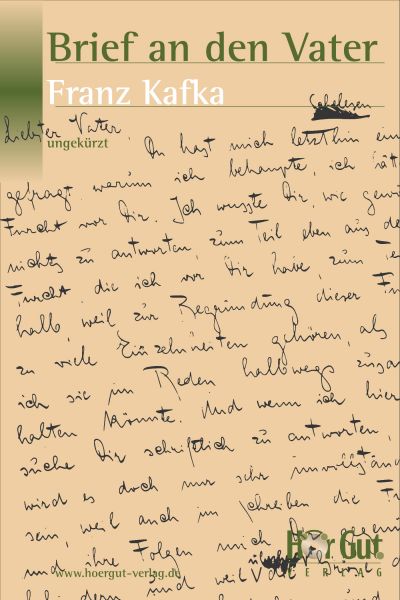 Brief an den Vater
Franz Kafka
Schelesen
Liebster Vater,
ungekürzt
Du hast mich letzthin ein
gefragt, warum ich behaupte, ich hätt
Furcht vor Dir. Ich wusste Dir, wie gewö
nichts zu antworten, zum Teil eben aus de
Furcht, die ich vor Dir habe, zum Te
halb, weil zur Begründung dieser Fu
zu viele Einzelnheiten gehören, als
ich sie im Reden halbwegs zusa
halten könnte. Und wenn ich hier
suche Dir schriftlich zu antworten,
wird es doch nur sehr unvollstän
sein, weil auch im Schreiben die Fu
und ihre Folgen mich
Hör Gut
VERLAG
www.hoergut-verlag.de
hindern und weil